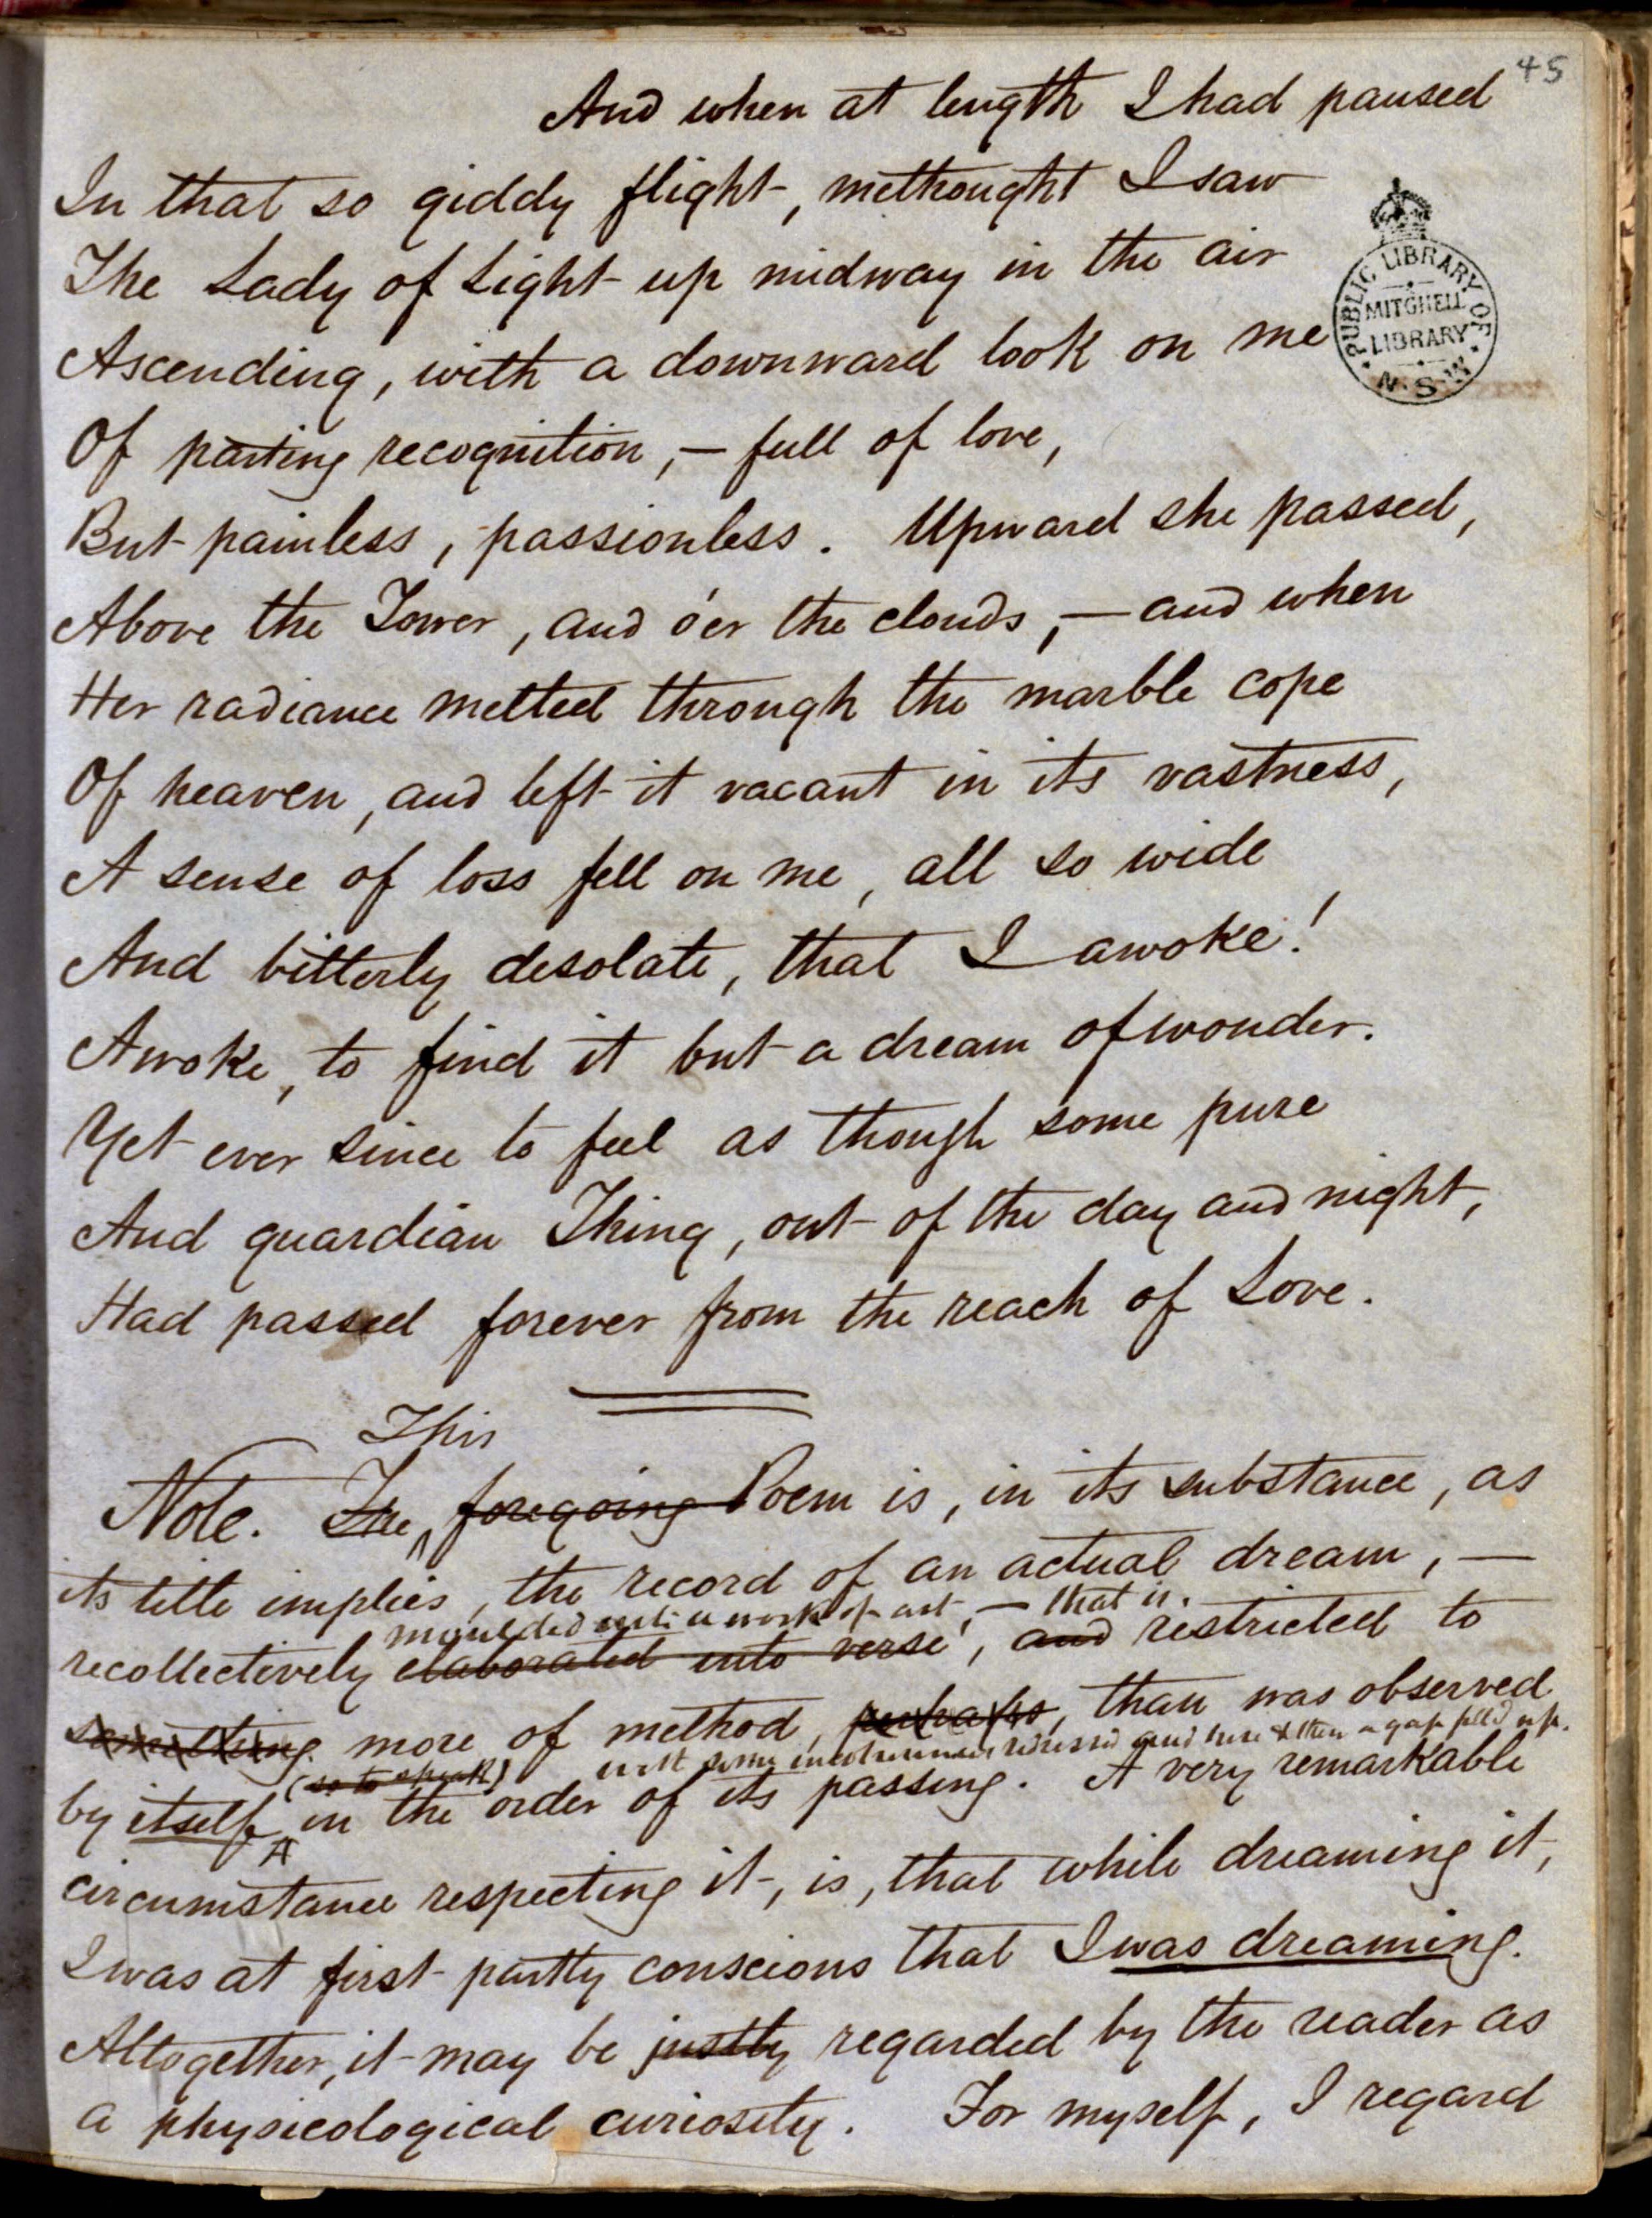 45
And when at length I had paused
In that so giddy flight, methought I saw
The Lady of Light up midway in the air
Ascending, with a downward look on me
Of parting recognition,— full of love,
But painless, passionless. Upward she passed,
Above the Tower, and o'er the clouds,— and when
Her radiance melted through the marble cope
Of heaven, and left it vacant in its vastness,
A sense of loss fell on me, all so wide
And bitterly desolate, that I awoke!
Awoke, to find it but a dream of wonder.
Yet ever since to feel as though some pure
And guardian Thing, out of the day and night,
Had passed forever from the reach of Love.
PUBLIC LIBRARY OF
MITCHELL
LIBRARY
N.S.W.
This
Note. The foregoing Poem is, in its substance, as
its title implies, the record of an actual dream,—
moulded into a work of art,— that is.
recollectively elaborated into verse, and restricted to
something more of method, perhaps, than was observed
(so to speak) with some redressed and here & there a gap fill'd up.
by itself in the order of its passing. A very remarkable
circumstance respecting it, is, that while dreaming it,
I was at first partly conscious that I was dreaming.
Altogether, it may be justly regarded by the reader as
a physicological curiosity. For myself, I regard